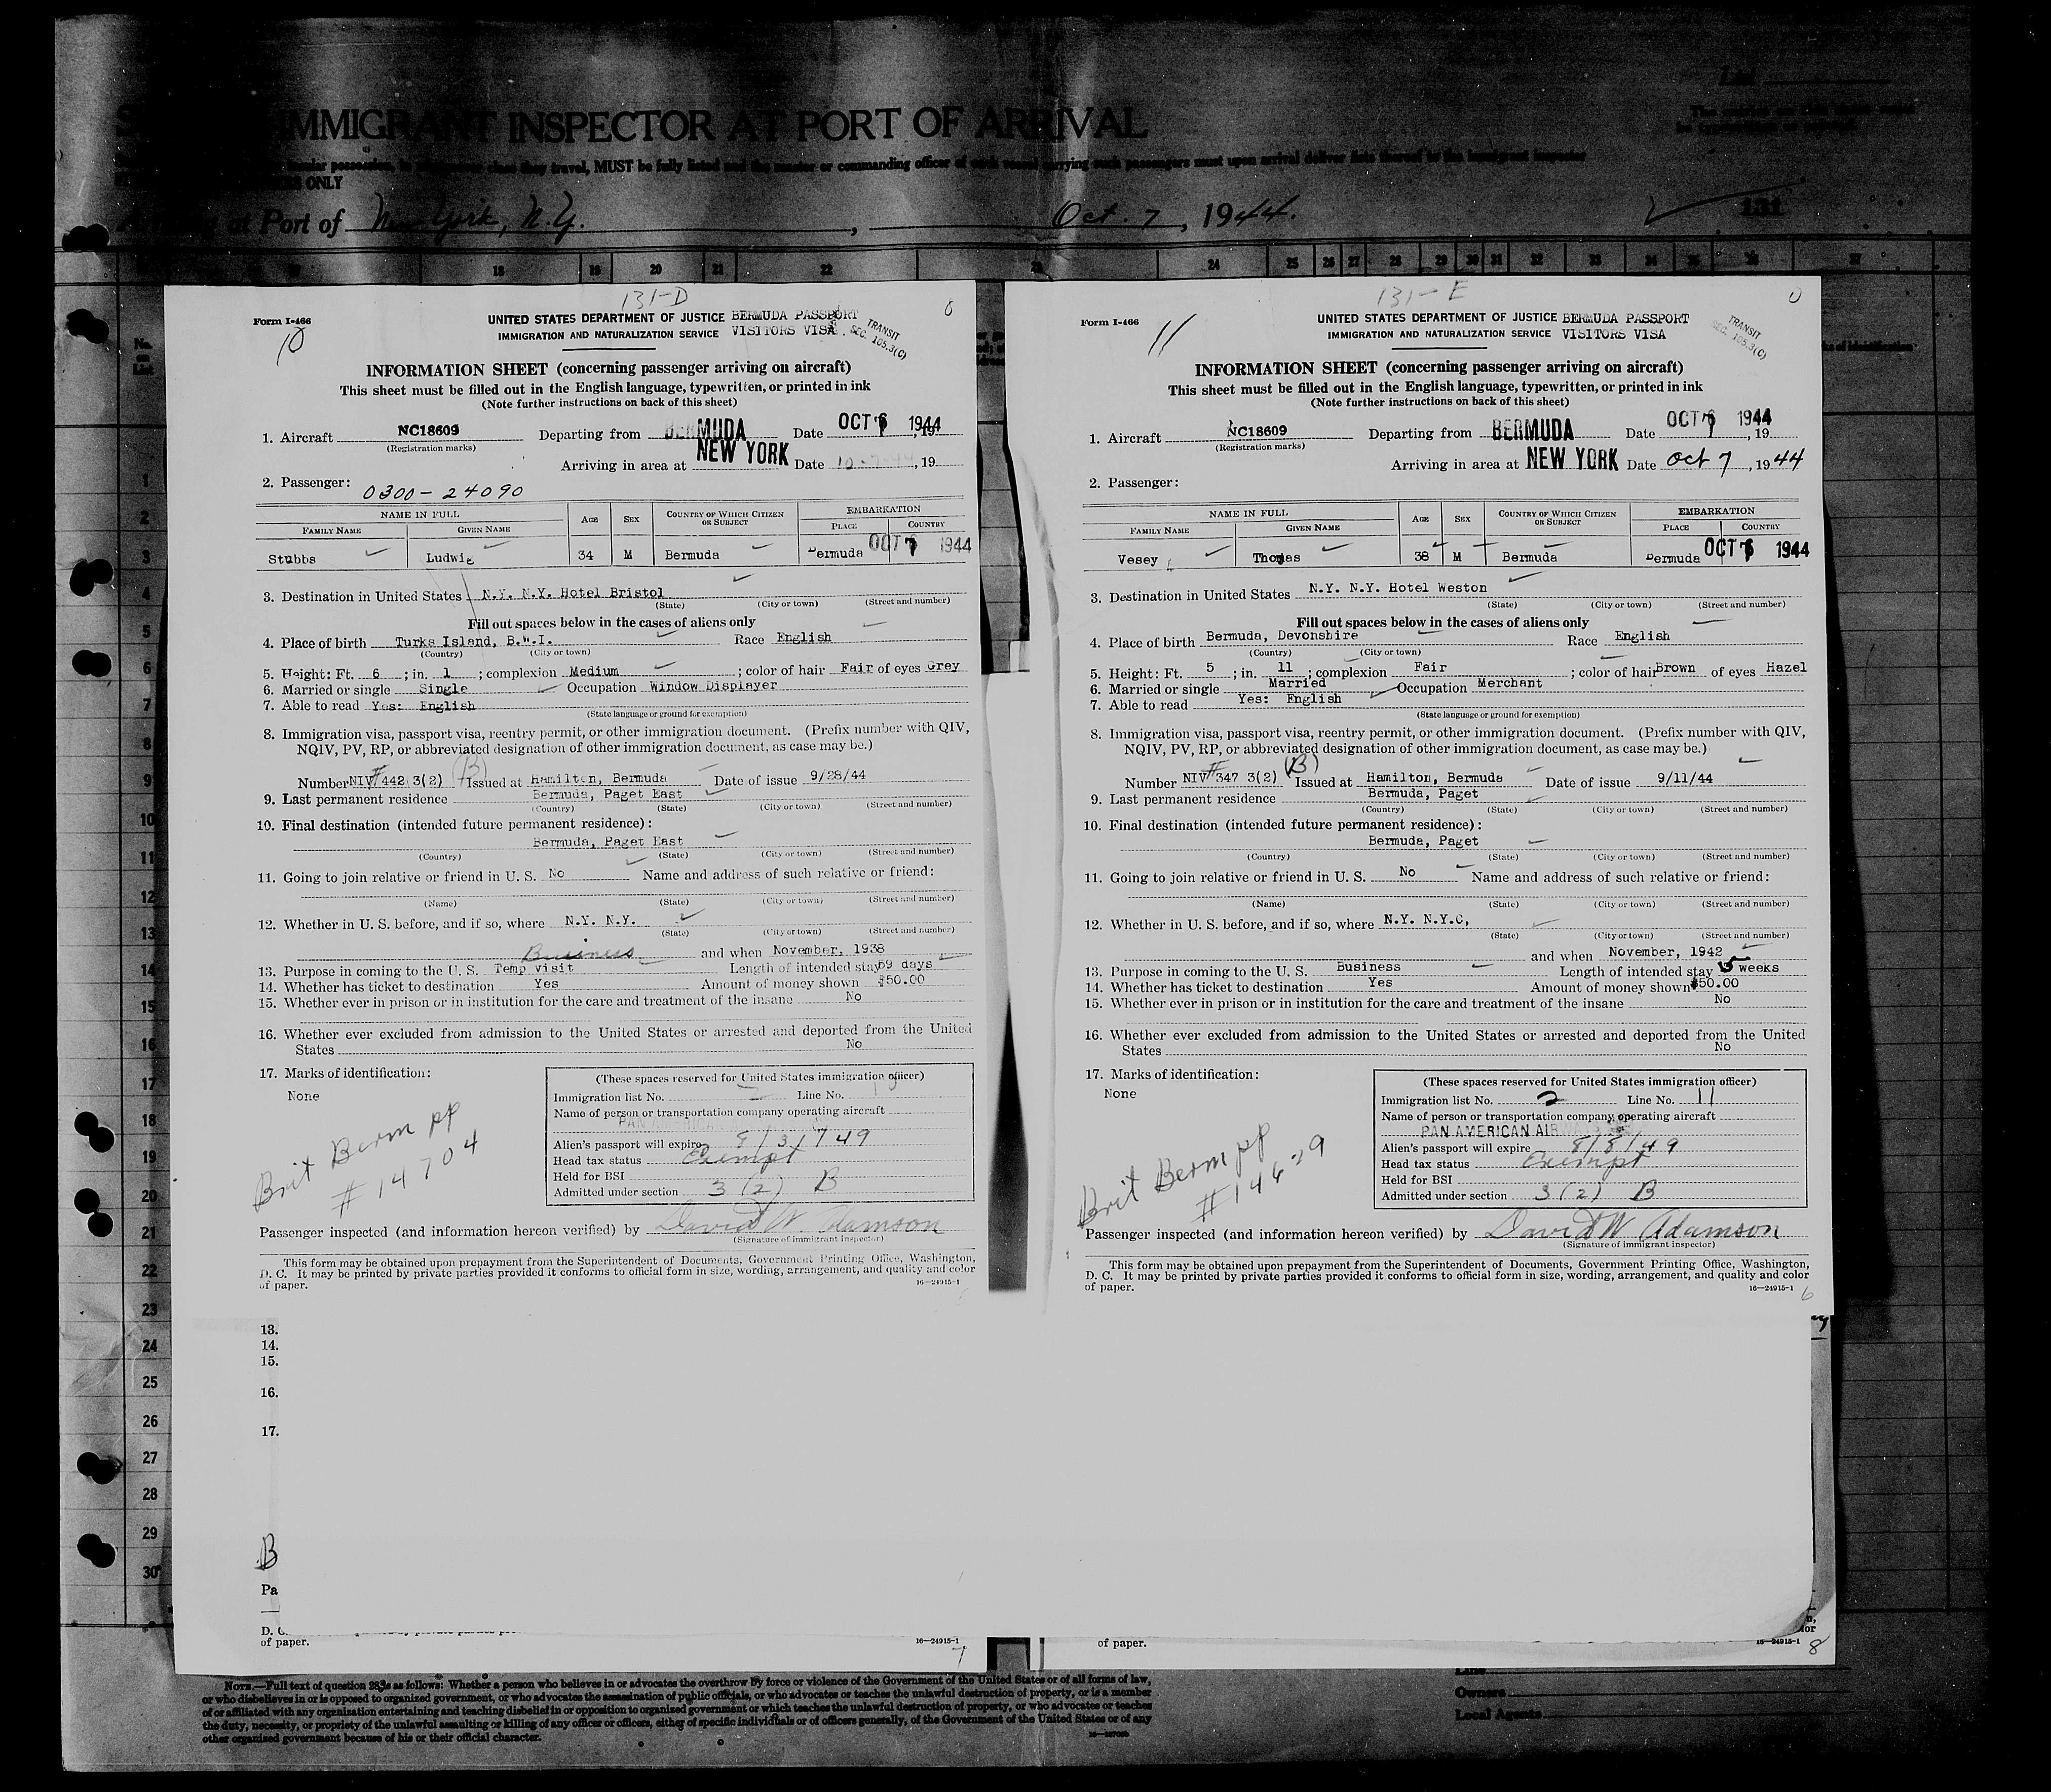 IMMIGRANT INSPECTOR AT PORT OF ARRIVAL
ONLY
at Port of New York, N.Y. , Oct. 7, 1944.
131
18 19 20 21 22 24 25 26 27 28 29 30 31 32 33 34 35 36 37
131-D
Form I-466
10
UNITED STATES DEPARTMENT OF JUSTICE BERMUDA PASSPORT
IMMIGRATION AND NATURALIZATION SERVICE VISITORS VISA
TRANSIT
SEC. 105.3(C)
INFORMATION SHEET (concerning passenger arriving on aircraft)
This sheet must be filled out in the English language, typewritten, or printed in ink
(Note further instructions on back of this sheet)
1. Aircraft NC18609 Departing from BERMUDA Date OCT 1944, 19
(Registration marks)
Arriving in area at NEW YORK Date 10-7-44, 19
2. Passenger: 0300-24090
NAME IN FULL AGE SEX COUNTRY OF WHICH CITIZEN OR SUBJECT EMBARKATION
FAMILY NAME GIVEN NAME PLACE COUNTRY
Stubbs Ludwig 34 M Bermuda Bermuda OCT 1944
3. Destination in United States N.Y. N.Y. Hotel Bristol
(State) (City or town) (Street and number)
Fill out spaces below in the cases of aliens only
4. Place of birth Turks Island, B.W.I. Race English
(Country) (City or town)
5. Height: Ft. 6 ; in. 1 ; complexion Medium ; color of hair Fair of eyes Grey
6. Married or single Single Occupation Window Displayer
7. Able to read Yes: English
(State language or ground for exemption)
8. Immigration visa, passport visa, reentry permit, or other immigration document. (Prefix number with QIV,
NQIV, PV, RP, or abbreviated designation of other immigration document, as case may be.)
Number NIV # 442 3(2) (B) Issued at Hamilton, Bermuda Date of issue 9/28/44
9. Last permanent residence Bermuda, Paget East
(Country) (State) (City or town) (Street and number)
10. Final destination (intended future permanent residence):
Bermuda, Paget East
(Country) (State) (City or town) (Street and number)
11. Going to join relative or friend in U. S. No Name and address of such relative or friend:
(Name) (State) (City or town) (Street and number)
12. Whether in U. S. before, and if so, where N.Y. N.Y.
(State) (City or town) (Street and number)
Business and when November, 1938
13. Purpose in coming to the U. S. Temp visit Length of intended stay 59 days
14. Whether has ticket to destination Yes Amount of money shown $50.00
15. Whether ever in prison or in institution for the care and treatment of the insane No
16. Whether ever excluded from admission to the United States or arrested and deported from the United
States No
17. Marks of identification:
None
Brit Berm pp
# 14704
(These spaces reserved for United States immigration officer)
Immigration list No. Line No.
Name of person or transportation company operating aircraft
PAN AMERICAN
Alien's passport will expire 8/31/49
Head tax status Exempt
Held for BSI
Admitted under section 3(2) B
Passenger inspected (and information hereon verified) by David W Adamson
(Signature of immigrant inspector)
This form may be obtained upon prepayment from the Superintendent of Documents, Government Printing Office, Washington,
D. C. It may be printed by private parties provided it conforms to official form in size, wording, arrangement, and quality and color
of paper.
16—24915-1
131-E
Form I-466
11
UNITED STATES DEPARTMENT OF JUSTICE BERMUDA PASSPORT
IMMIGRATION AND NATURALIZATION SERVICE VISITORS VISA
TRANSIT
SEC. 105.3(C)
INFORMATION SHEET (concerning passenger arriving on aircraft)
This sheet must be filled out in the English language, typewritten, or printed in ink
(Note further instructions on back of this sheet)
1. Aircraft NC18609 Departing from BERMUDA Date OCT 1944, 19
(Registration marks)
Arriving in area at NEW YORK Date Oct 7, 1944
2. Passenger:
NAME IN FULL AGE SEX COUNTRY OF WHICH CITIZEN OR SUBJECT EMBARKATION
FAMILY NAME GIVEN NAME PLACE COUNTRY
Vesey Thomas 38 M Bermuda Bermuda OCT 1944
3. Destination in United States N.Y. N.Y. Hotel Weston
(State) (City or town) (Street and number)
Fill out spaces below in the cases of aliens only
4. Place of birth Bermuda, Devonshire Race English
(Country) (City or town)
5. Height: Ft. 5 ; in. 11 ; complexion Fair ; color of hair Brown of eyes Hazel
6. Married or single Married Occupation Merchant
7. Able to read Yes: English
(State language or ground for exemption)
8. Immigration visa, passport visa, reentry permit, or other immigration document. (Prefix number with QIV,
NQIV, PV, RP, or abbreviated designation of other immigration document, as case may be.)
Number NIV # 347 3(2) (B) Issued at Hamilton, Bermuda Date of issue 9/11/44
9. Last permanent residence Bermuda, Paget
(Country) (State) (City or town) (Street and number)
10. Final destination (intended future permanent residence):
Bermuda, Paget
(Country) (State) (City or town) (Street and number)
11. Going to join relative or friend in U. S. No Name and address of such relative or friend:
(Name) (State) (City or town) (Street and number)
12. Whether in U. S. before, and if so, where N.Y. N.Y.C,
(State) (City or town) (Street and number)
and when November, 1942
13. Purpose in coming to the U. S. Business Length of intended stay weeks
14. Whether has ticket to destination Yes Amount of money shown $50.00
15. Whether ever in prison or in institution for the care and treatment of the insane No
16. Whether ever excluded from admission to the United States or arrested and deported from the United
States No
17. Marks of identification:
None
Brit Berm pp
(These spaces reserved for United States immigration officer)
Immigration list No. 2 Line No. 11
Name of person or transportation company operating aircraft
PAN AMERICAN AIR
Alien's passport will expire 8/8/49
Head tax status Exempt
Held for BSI
Admitted under section 3(2) B
Passenger inspected (and information hereon verified) by David W Adamson
(Signature of immigrant inspector)
This form may be obtained upon prepayment from the Superintendent of Documents, Government Printing Office, Washington,
D. C. It may be printed by private parties provided it conforms to official form in size, wording, arrangement, and quality and color
of paper.
16—24915-1
6
13.
14.
15.
16.
17.
B
Pa
D. C.
of paper.
16—24915-1
7
of paper.
16—24915-1
8
1
2
3
4
5
6
7
8
9
10
11
12
13
14
15
16
17
18
19
20
21
22
23
24
25
26
27
28
29
30
NOTE.—Full text of question 28 is as follows: Whether a person who believes in or advocates the overthrow by force or violence of the Government of the United States or of all forms of law,
or who disbelieves in or is opposed to organized government, or who advocates the assassination of public officials, or who advocates or teaches the unlawful destruction of property, or is a member
of or affiliated with any organization entertaining and teaching disbelief in or opposition to organized government or which teaches the unlawful destruction of property, or who advocates or teaches
the duty, necessity, or propriety of the unlawful assaulting or killing of any officer or officers, either of specific individuals or of officers generally, of the Government of the United States or of any
other organized government because of his or their official character.
Line
Owners
Local Agents